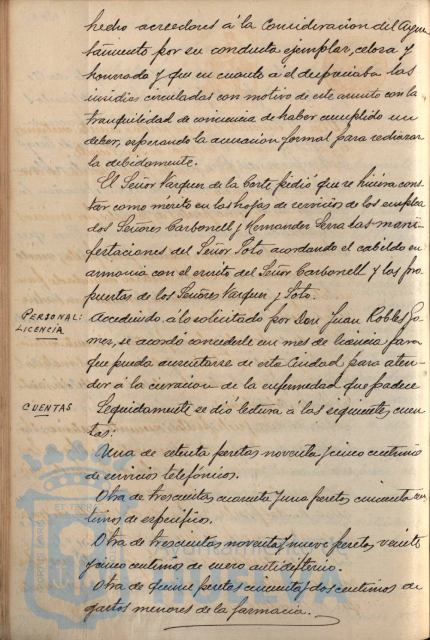 hecho acreedores á la Consideracion del Ayun
tamiento por su conducta ejemplar, celosa y
honrada y que en cuanto á él despreciaba las
insidias circuladas con motivo de este asunto con la
tranquilidad de conciencia de haber cumplido un
deber, esperando la acusacion formal para rechazar
la debidamente.
El Señor Vazquez de la Corte pidió que se hiciera cons-
tar como mérito en las hojas de servicios de los emplea
dos Señores Carbonell y Hernandez Serra las mani-
festaciones del Señor Soto acordando el cabildo en
armonia con el escrito del Señor Carbonell y las pro
puestas de los Señores Vazquez y Soto.
PERSONAL:
LICENCIA
Accediendo á lo solicitado por Don Juan Robles Go-
mez, se acordó concederle un mes de licencia para
que pueda ausentarse de esta Ciudad para aten-
der á la curacion de la enfermedad que padece
CUENTAS
Seguidamente se dió lectura á las siguientes cuen
tas:
Una de setenta pesetas noventa y cinco centimos
de servicios telefónicos.
Otra de trescientas cuarenta y una pesetas cincuenta cen-
timos de específicos.
Otra de trescientas noventa y nueve pesetas veinte
y cinco centimos de suero antidifterico.
Otra de quince pesetas cincuenta y dos centimos de
gastos menores de la farmacia.